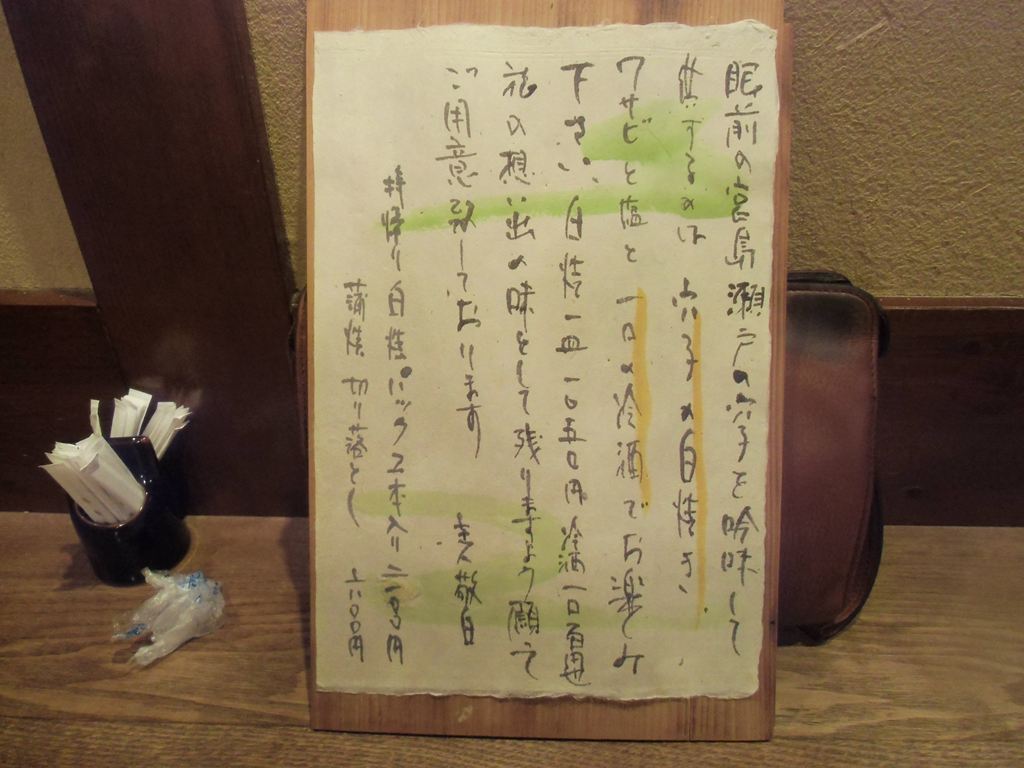 眼前の宮島瀬戸の穴子を吟味して
供するのは 穴子の白焼き、
ワサビと塩と 一口の冷酒でお楽しみ
下さい、白焼一皿一〇五〇円 冷酒一口百円也
旅の想い出の味として残りますよう願って
ご用意致しております 主人敬白
持帰り白焼パック 2本入り二一〇〇円
蒲焼 切り落とし 六〇〇円